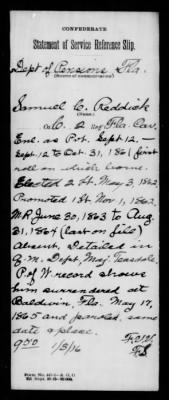 CONFEDERATE
Statement of Service Reference Slip.
Dept of Pensions Fla.
(Source of communication)
Samuel C. Reddick
(Name.)
Co. C. 2 Reg. Fla. Cav.
Enl. as Pvt. Sept 12—
Sept. 12 to Oct. 31, 1861 first
roll on which borne.
Elected 2 Lt. May 3, 1862.
Promoted 1st Nov. 1, 1862.
M R June 30, 1863 to Aug
31, 1864 (last on file)
Absent. Detailed in
Q.M. Dept, Maj. Teasdale.
P. of W. record shows
him surrendered at
Baldwin, Fla. May 17,
1865 and paroled, same
date & place.
970 1/5/16